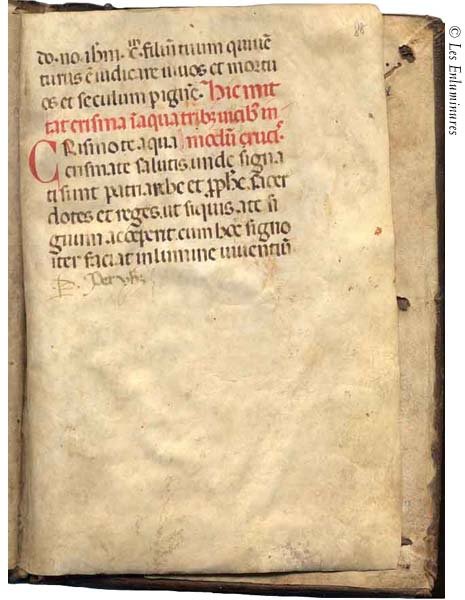 88
do. no. ihm. xp̄. filiū tuum qui uē
turus ē iudicare uiuos et mortu
os et seculum p ignē. Hic mit
tat crisma ī aqua tribꝫ uicibꝫ in
CRismo te aqua modū crucis.
crismate salutis. unde signa
ti sunt patriarche et ꝓphe. sacer
dotes et reges. ut siquis. a te si
gnum acceperit. cum hoc signo
iter faciat in lumine uiuentiū
Per
© Les Enluminures